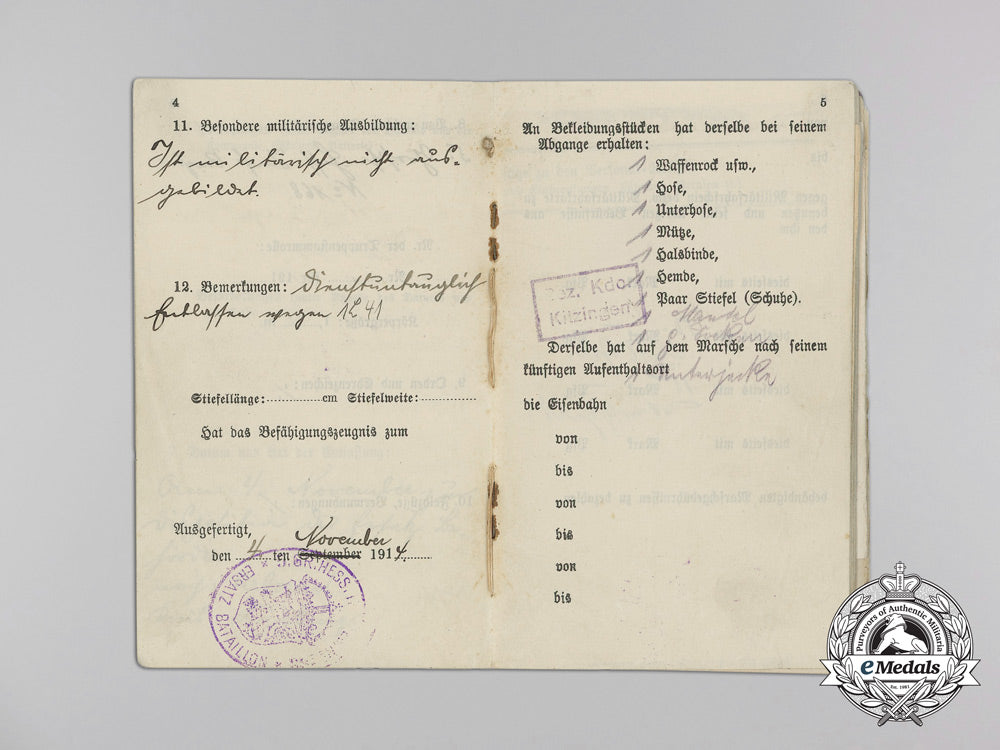 4
11. Besondere militärische Ausbildung:
Ist militärisch nicht aus-
gebildet.
12. Bemerkungen: dienstuntauglich
Entlassen wegen 1L 41
Stiefellänge: cm Stiefelweite:
Hat das Befähigungszeugnis zum
Ausgefertigt,
November
den 4 ten September 1914.
ERSATZ BATAILLON * GR. HESS.
5
An Bekleidungsstücken hat derselbe bei seinem
Abgange erhalten:
1 Waffenrock usw.,
1 Hose,
1 Unterhose,
1 Mütze,
1 Halsbinde,
1 Hemde,
1 Paar Stiefel (Schuhe).
Bez. Kdo.
Kitzingen
1 Mantel
Derselbe hat auf dem Marsche nach seinem
künftigen Aufenthaltsort
1 Unterjacke
die Eisenbahn
von
bis
von
bis
von
bis
Purveyors of Authentic Militaria
eMedals
Est. 1985